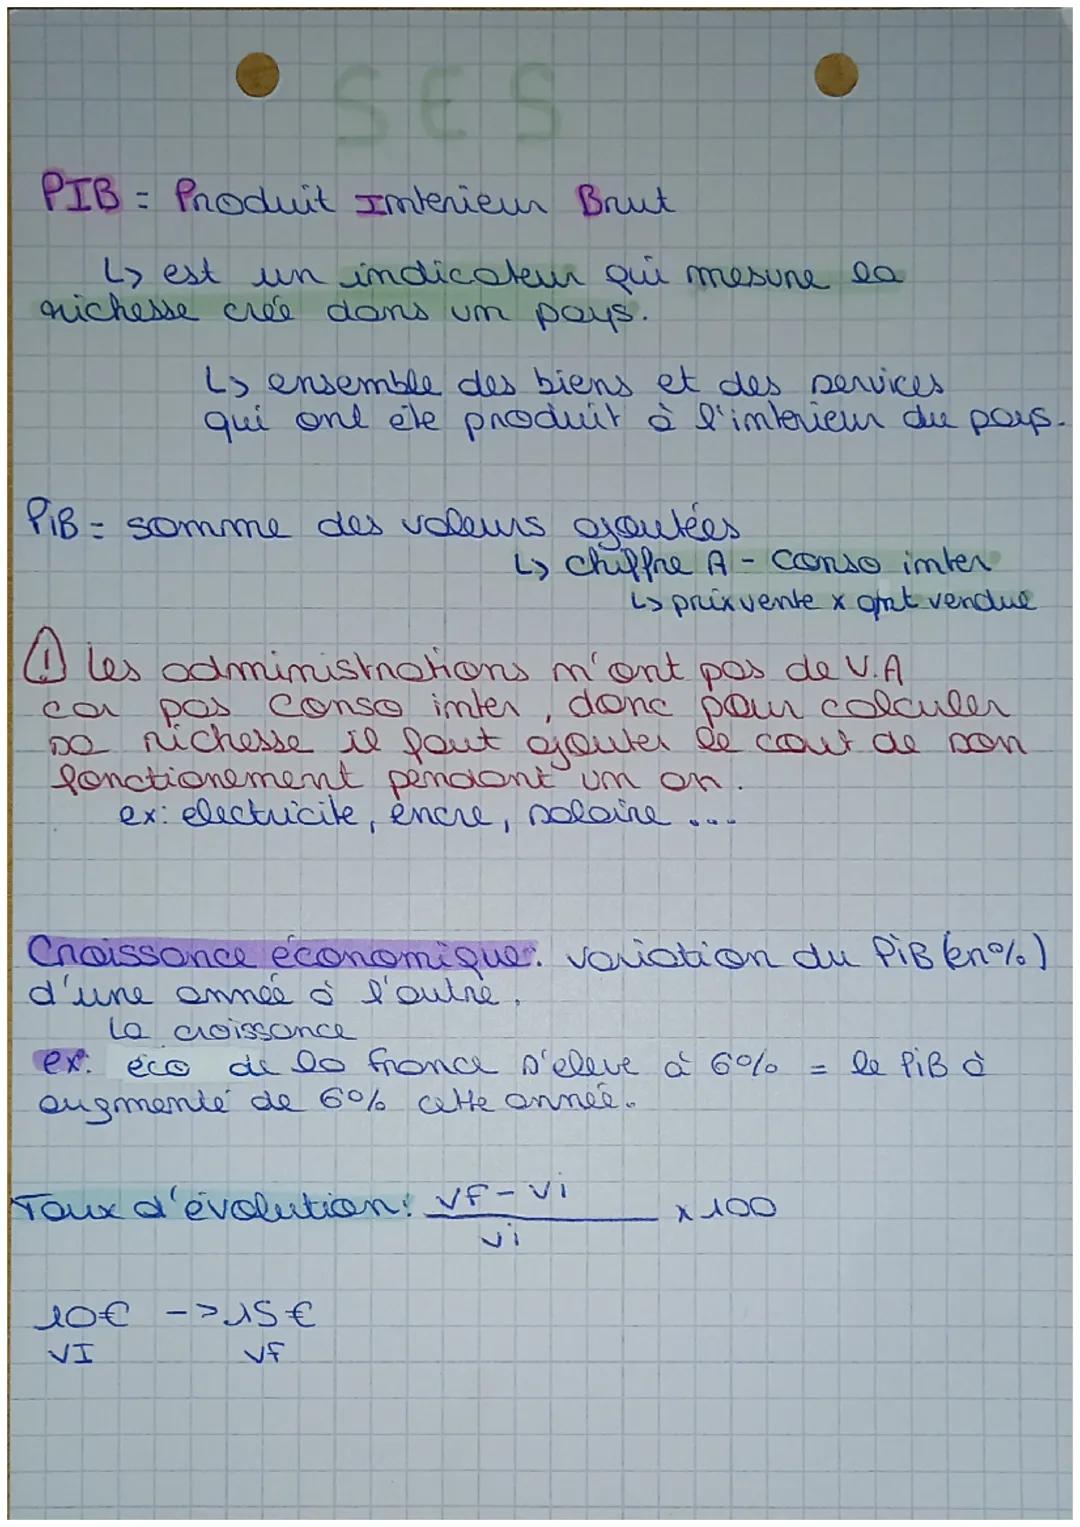 SES
PIB = Produit Interieur Brut
↳ est un indicateur qui mesure la
richesse créé dans un pays.
↳ ensemble des biens et des services
qui ont éte produit à l'interieur du pays.
PiB = somme des valeurs ajoutées
↳ chiffre A - conso inter
↳ prix vente x qnt vendue
⚠ les administrations n'ont pas de V.A
car pas conso inter, donc pour calculer
sa richesse il faut ajouter le cout de son
fonctionement pendant un an.
ex: electricite, encre, salaire ...
Croissance économique: variation du PiB (en%)
d'une année à l'autre.
la croissance
ex: éco de la france s'eleve à 6% = le PiB à
augmenté de 6% cette année.
Taux d'évolution: vf - vi
x 100
vi
10€ -> 15€
VI vf